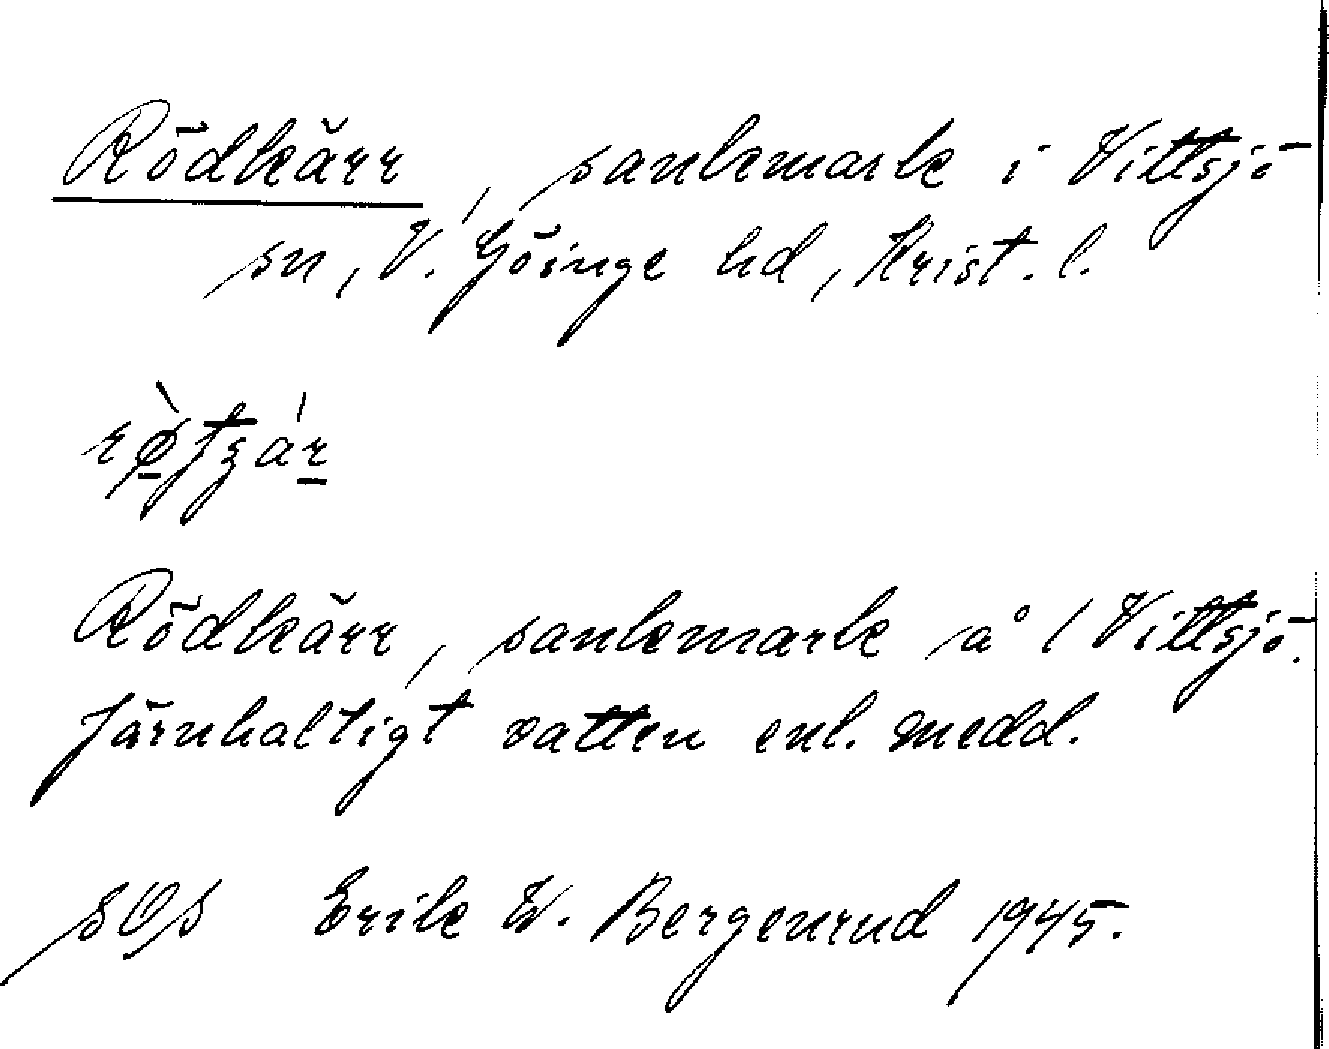 Rödkärr, sankmark i Vittsjö
sn, V. Göinge hd, Krist. l.
Rödkärr, sankmark å 1 Vittsjö.
Järnhaltigt vatten enl. medd.
Erik W. Bergenrud 1945.